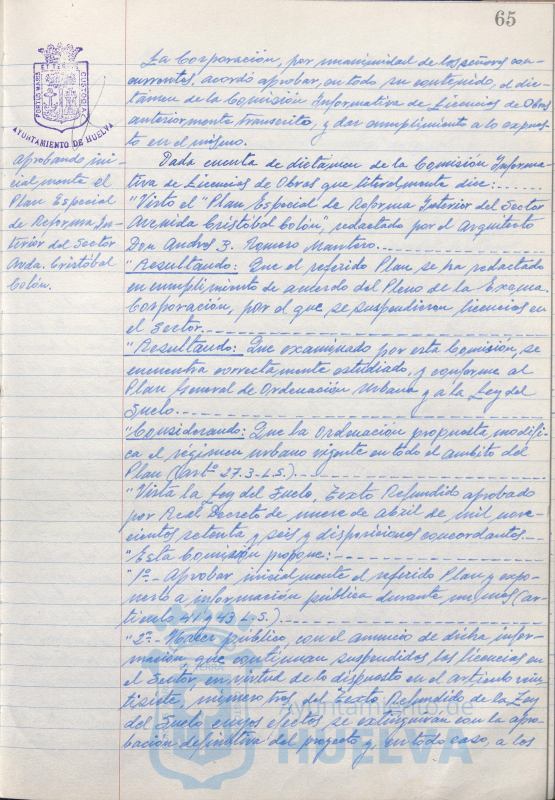 65
PORTUS MARIS ET TERRAE CUSTODIA
AYUNTAMIENTO DE HUELVA
aprobando ini-
cialmente el
Plan Especial
de Reforma In-
terior del Sector
Avda. Cristóbal
Colón.
La Corporación, por unanimidad de los señores con-
currentes, acordó aprobar, en todo su contenido, el dic-
támen de la Comisión Informativa de Licencias de Obras
anteriormente transcrito, y dar cumplimiento a lo expues-
to en el mismo.
Dada cuenta de dictámen de la Comisión Informa-
tiva de Licencias de Obras que literalmente dice:
"Visto el "Plan Especial de Reforma Interior del Sector
Avenida Cristóbal Colón", redactado por el Arquitecto
Don Andrés B. Romero Mantero.
"Resultando: Que el referido Plan, se ha redactado
en cumplimiento de acuerdo del Pleno de la Excma.
Corporación, por el que se suspendieron licencias en
el Sector.
"Resultando: Que examinado por esta Comisión, se
encuentra correctamente estudiado, y conforme al
Plan General de Ordenación Urbana y a la Ley del
Suelo.
"Considerando: Que la Ordenación propuesta, modifi-
ca el régimen urbano vigente en todo el ámbito del
Plan (artº 27.3-L.S.).
"Vista la Ley del Suelo, Texto Refundido aprobado
por Real Decreto de nueve de abril de mil nove-
cientos setenta y seis y disposiciones concordantes.
"Esta Comisión propone:
"1º.- Aprobar inicialmente el referido Plan y expo-
nerlo a información pública durante un mes (ar-
tículo 41 y 43 L.S.).
"2º.- Hacer público, con el anuncio de dicha infor-
mación que continuan suspendidas las licencias en
el Sector en virtud de lo dispuesto en el artículo vein-
tisiete, número tres del Texto Refundido de la Ley
del Suelo cuyos efectos se extinguirán con la apro-
bación definitiva del proyecto y, en todo caso, a los
Ayuntamiento de
HUELVA